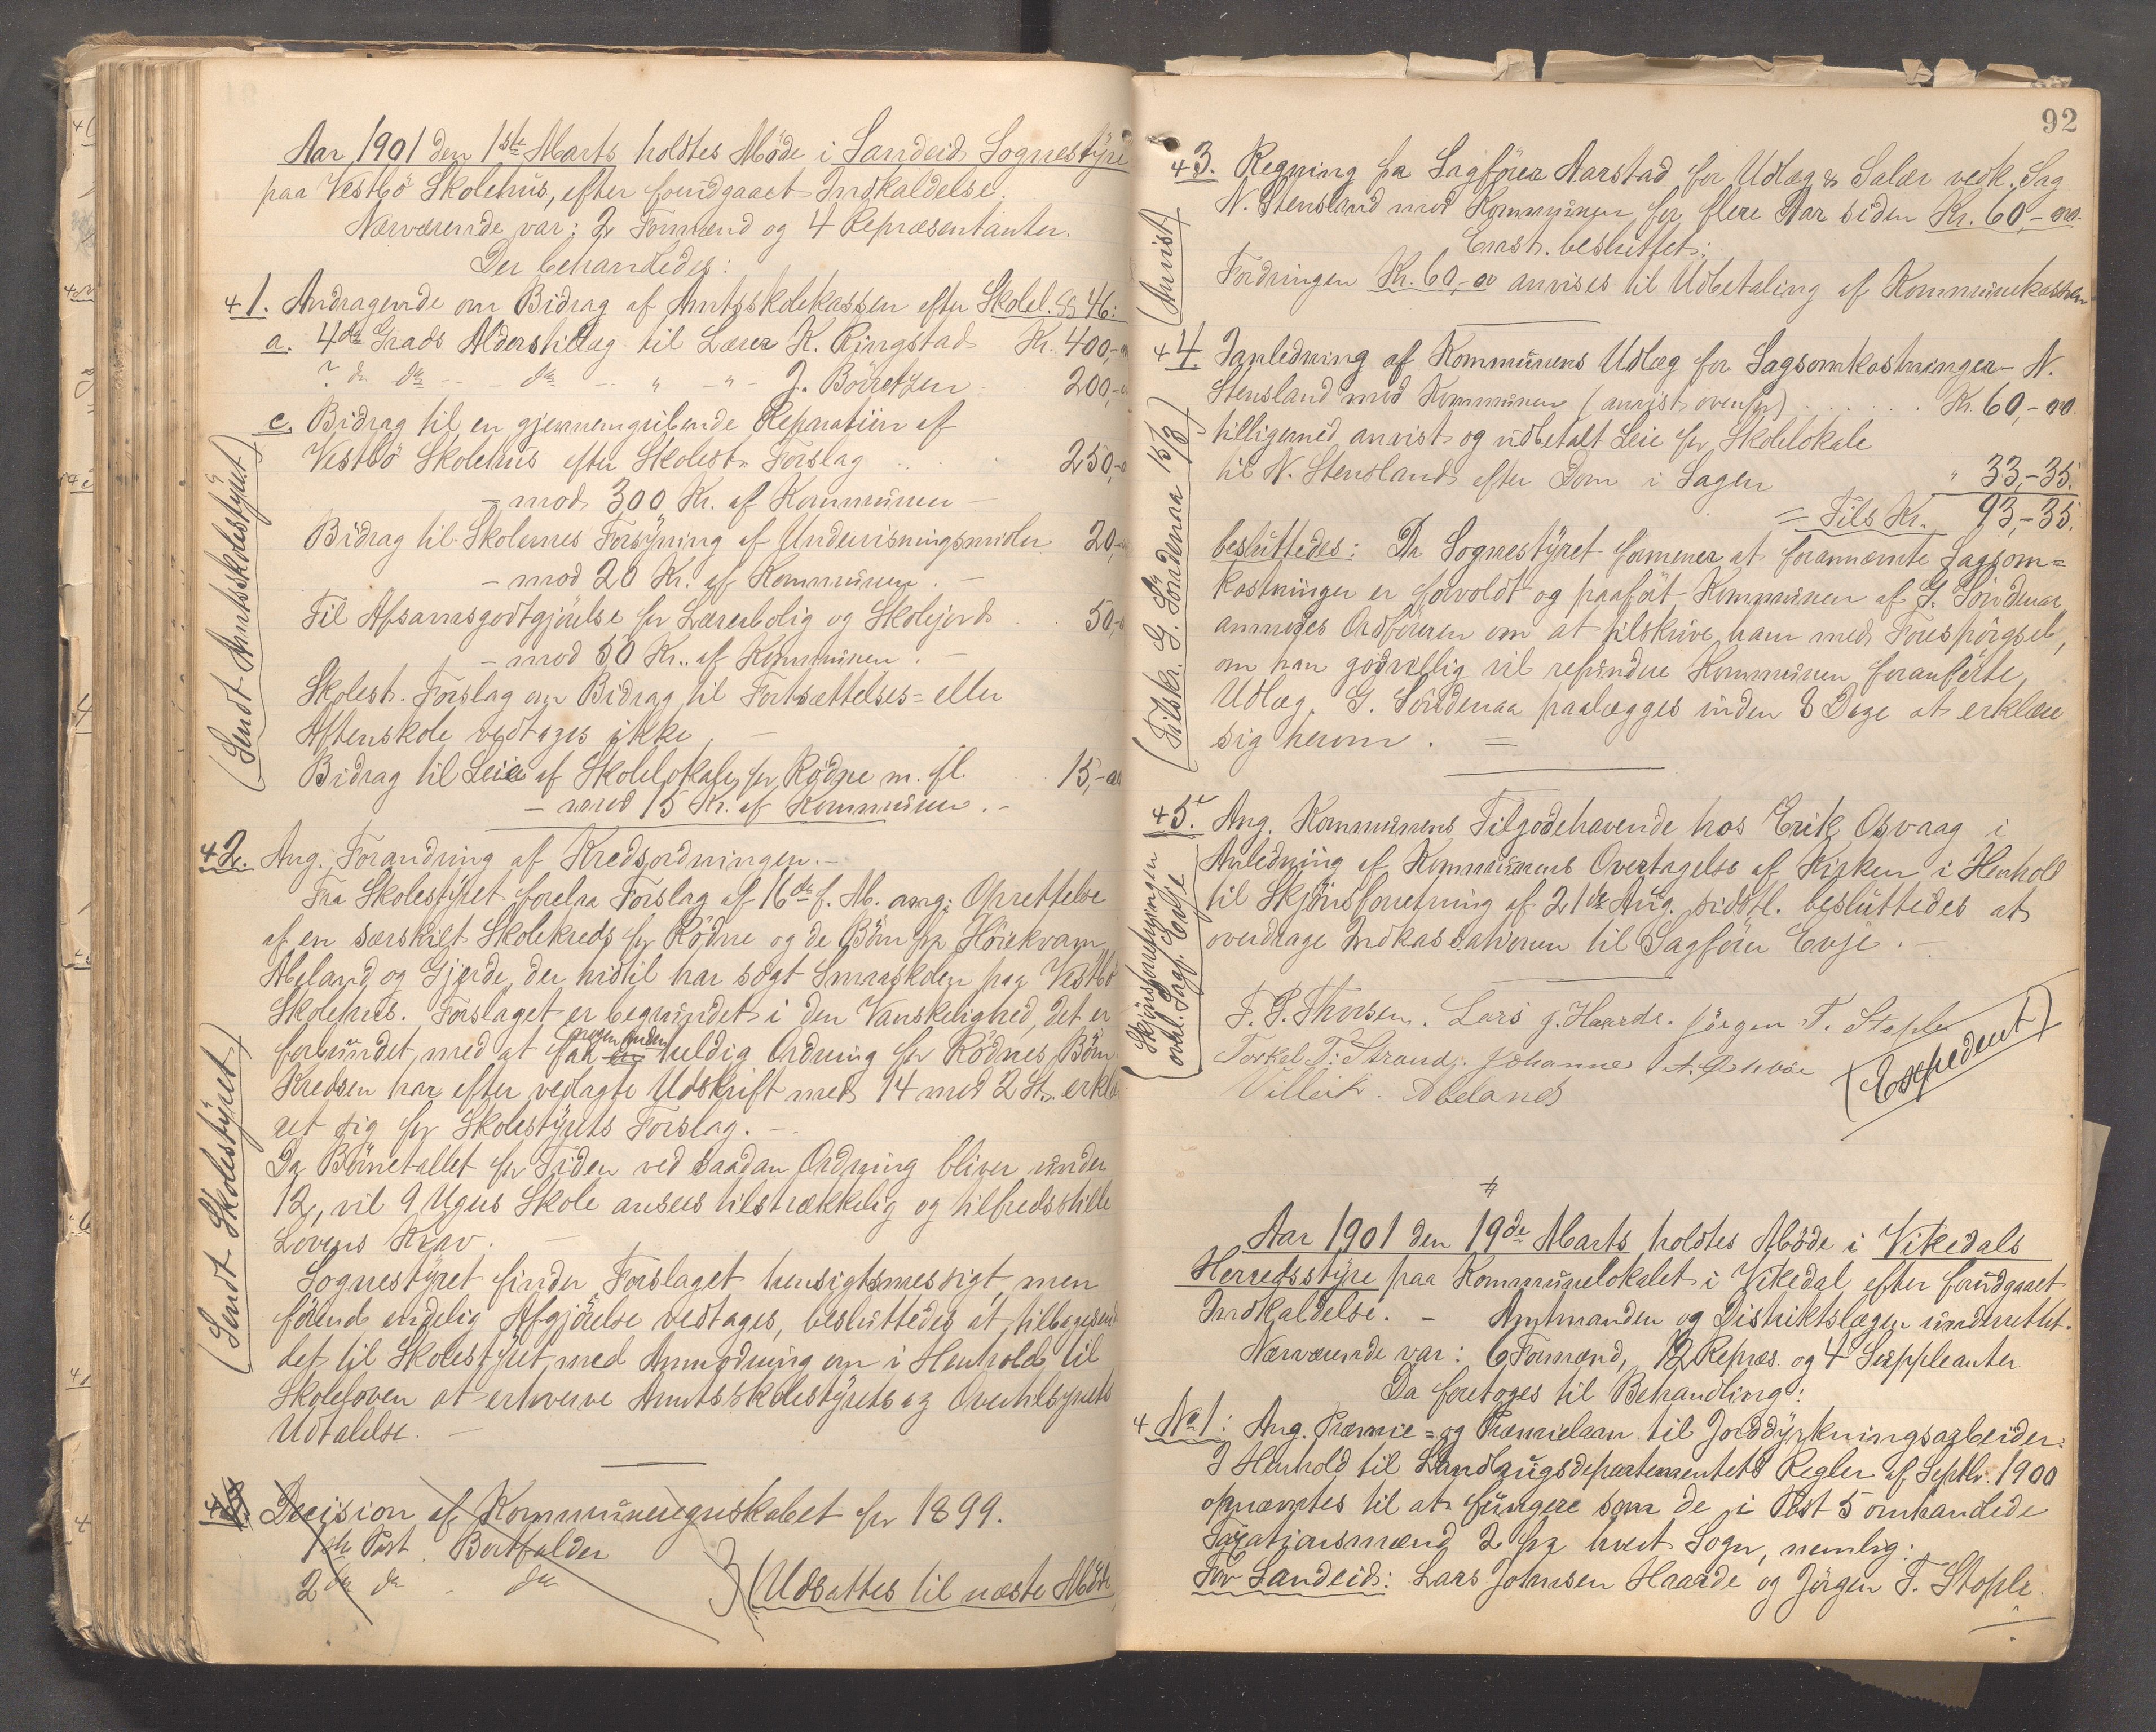 Aar 1901 den 1ste Marts holdtes Möde i Sandeid Sognestyre
paa Vestbö Skolehus, efter forudgaaet Indkaldelse.
Nærværende var: 2 Formænd og 4 Repræsentanter.
Der behandledes:
+ 1. Andragende om Bidrag af Amtsskolekassen efter Skolel. §§ 46:
a. 4de Grads Alderstillæg til Lærer K. Ringstad Kr. 400,-
? de do - - do - " - " - J. Börretzen 200,-
c. Bidrag til en gjennemgribende Reparation af
Vestbö Skolehus efter Skolest. Forslag . . . 250,-
- mod 300 Kr. af Kommunen -
Bidrag til Skolernes Forsyning af Undervisningsmidler 20,-
- mod 20 Kr. af Kommunen. -
Til Afsavnsgodtgjörelse for Lærerbolig og Skolejord . . 50,-
- mod 50 Kr. af Kommunen. -
Skolest. Forslag om Bidrag til Fortsættelses= eller
Aftenskole vedtages ikke. -
Bidrag til Leie af Skolelokale for Rödne m. fl. . . 15,-00
- mod 15 Kr. af Kommunen. -
(Sendt Amtsskolestyret)
+ 2. Ang. Forandring af Kredsordningen. -
Fra Skolestyret forelaa Forslag af 16de f. M. ang. Oprettelse
af en særskilt Skolekreds for Rödne og de Börn fra Hörekvam
Abeland og Gjerde, der hidtil har sögt Smaaskolen paa Vestbö
Skolehus. Forslaget er begrundet i den Vanskelighed, det er
forbundet med at faa nogen anden heldig Ordning for Rödnes Börn.
Kredsen har efter vedlagte Udskrift med 14 mod 2 St. erklæ
ret sig for Skolestyrets Forslag. -
Da Börnetallet for Tiden ved saadan Ordning bliver under
12, vil 9 Ugers Skole ansees tilstrækkelig og tilfredsstille
Lovens Krav. -
Sognestyret finder Forslaget hensigtsmessigt, men
förend endelig Afgjörelse vedtages, besluttedes at tilbagesende
det til Skolestyret med Anmodning om i Henhold til
Skoleloven at erhverve Amtsskolestyrets og Overtilsynets
Udtalelse. -
(Sendt Skolestyret)
Decision af Kommuneregnskabet for 1899.
1ste Post. Bortfalder
2den do - do
(Udsattes til næste Möde
92
+ 3. Regning fra Sagförer Aarstad for Udlæg & Salær vedk. Sag
N. Stensland mod Kommunen for flere Aar siden Kr. 60,-00.
Enst. besluttet:
Fordringen Kr. 60,-00 anvises til Udbetaling af Kommunekassen
(Anvist)
+ 4. I anledning af Kommunens Udlæg for Sagsomkostninger - N.
Stensland mod Kommunen (anvist ovenfor) . . . . . Kr. 60,-00.
tilligemed anvist og udbetalt Leie for Skolelokale
til N. Stensland efter Dom i Sagen " 33,-35.
= Tils Kr. 93,-35.
besluttedes: Da Sognestyret formener at forannævnte Sagsom=
kostninger er forvoldt og paafört Kommunen af G. Söndenaa
anmodes Ordföreren om at tilskrive ham med Forespörgsel,
om han godvillig vil refundere Kommunen foranförte
Udlæg. G. Söndenaa paalægges inden 8 Dage at erklære
sig herom. =
(Tilskr. G. Söndenaa 15/3)
+ 5. Ang. Kommunens Tilgodehavende hos Erik Osvaag i
Anledning af Kommunens Overtagelse af Kirken i Henhold
til Skjönsforretning af 21de Aug. sidstl. besluttedes at
overdrage Indkassationen til Sagförer Evje. -
(Skjönsforretningen
ovbl. Sagf. Evje
F. G. Thorsen. Lars J. Haarde. Jörgen T. Stople
Torkel T. Strand. Johannes A.
Abeland
(Expedeut)
#
Aar 1901 den 19de Marts holdtes Möde i Vikedals
Herredsstyre paa Kommunelokalet i Vikedal efter forudgaaet
Indkaldelse. - Amtmanden og Distriktslægen underrettet.
Nærværende var: 6 Formænd, 12 Repræs. og 4 Suppleanter
Da foretoges til Behandling:
+ No 1: Ang. Præmie= og Præmielaan til Jorddyrkningsarbeider:
I Henhold til Landbrugsdepartementets Regler af Septbr. 1900
opnævntes til at fungere som de i Post 5 omhandlede
Taxationsmænd 2 fra hvert Sogn, nemlig:
For Sandeid: Lars Johnsen Haarde og Jörgen T. Stople.